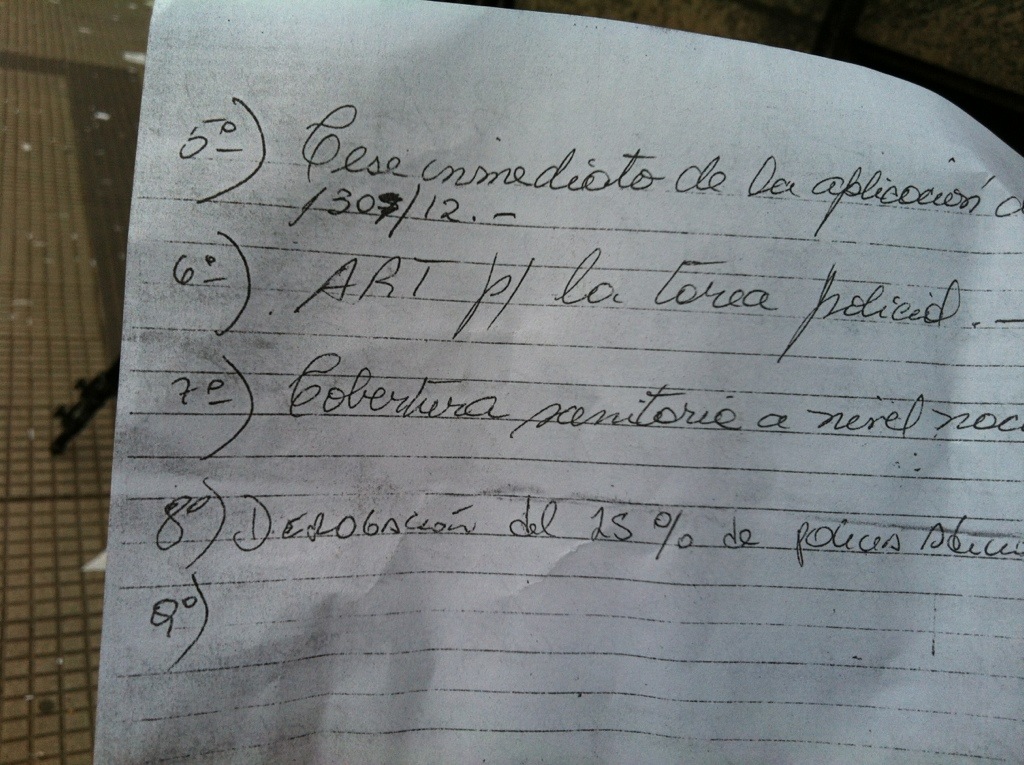 5º) Cese inmediato de la aplicación d
1307/12.-
6º). ART p/ la tarea policial. -
7º) Cobertura sanitaria a nivel nac
8º) DEROGACIÓN del 25% de
9º)